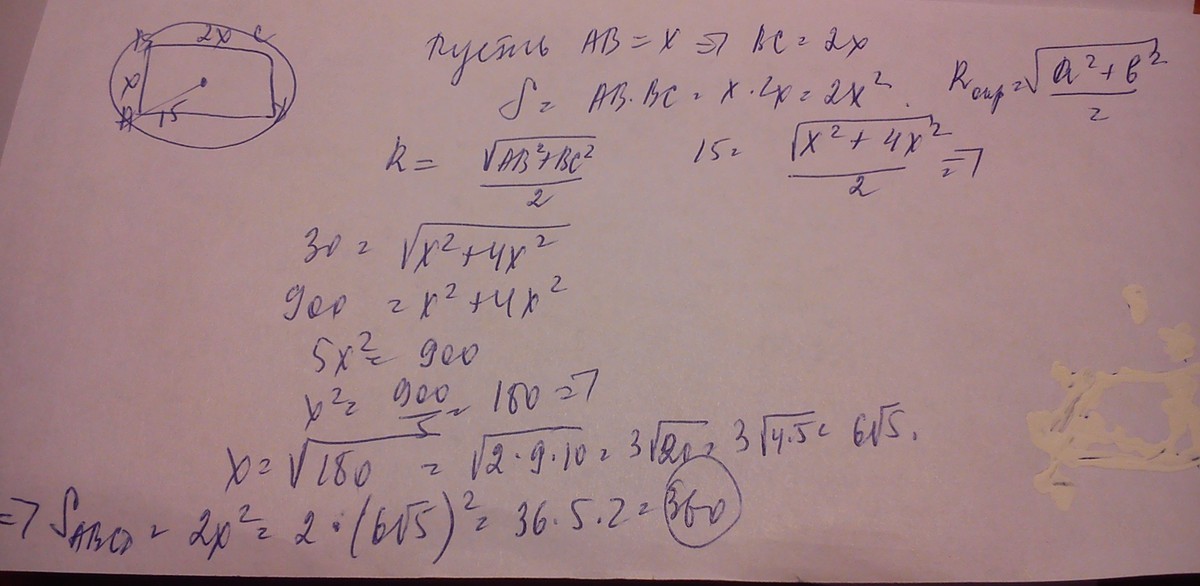 B 2x C
x
A 15 D
Пусть AB = x => BC = 2x
S = AB · BC = x · 2x = 2x².
Rокр = √(a² + b²)/2
R = √(AB² + BC²)/2
15 = √(x² + 4x²)/2 =>
30 = √(x² + 4x²)
900 = x² + 4x²
5x² = 900
x² = 900/5 = 180 =>
x = √180 = √(2·9·10) = 3√20 = 3√(4·5) = 6√5.
=> S ABCD = 2x² = 2 · (6√5)² = 36·5·2 = 360